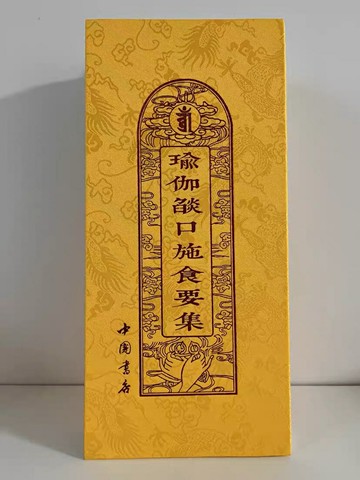 瑜伽燄口施食要集
中国書店